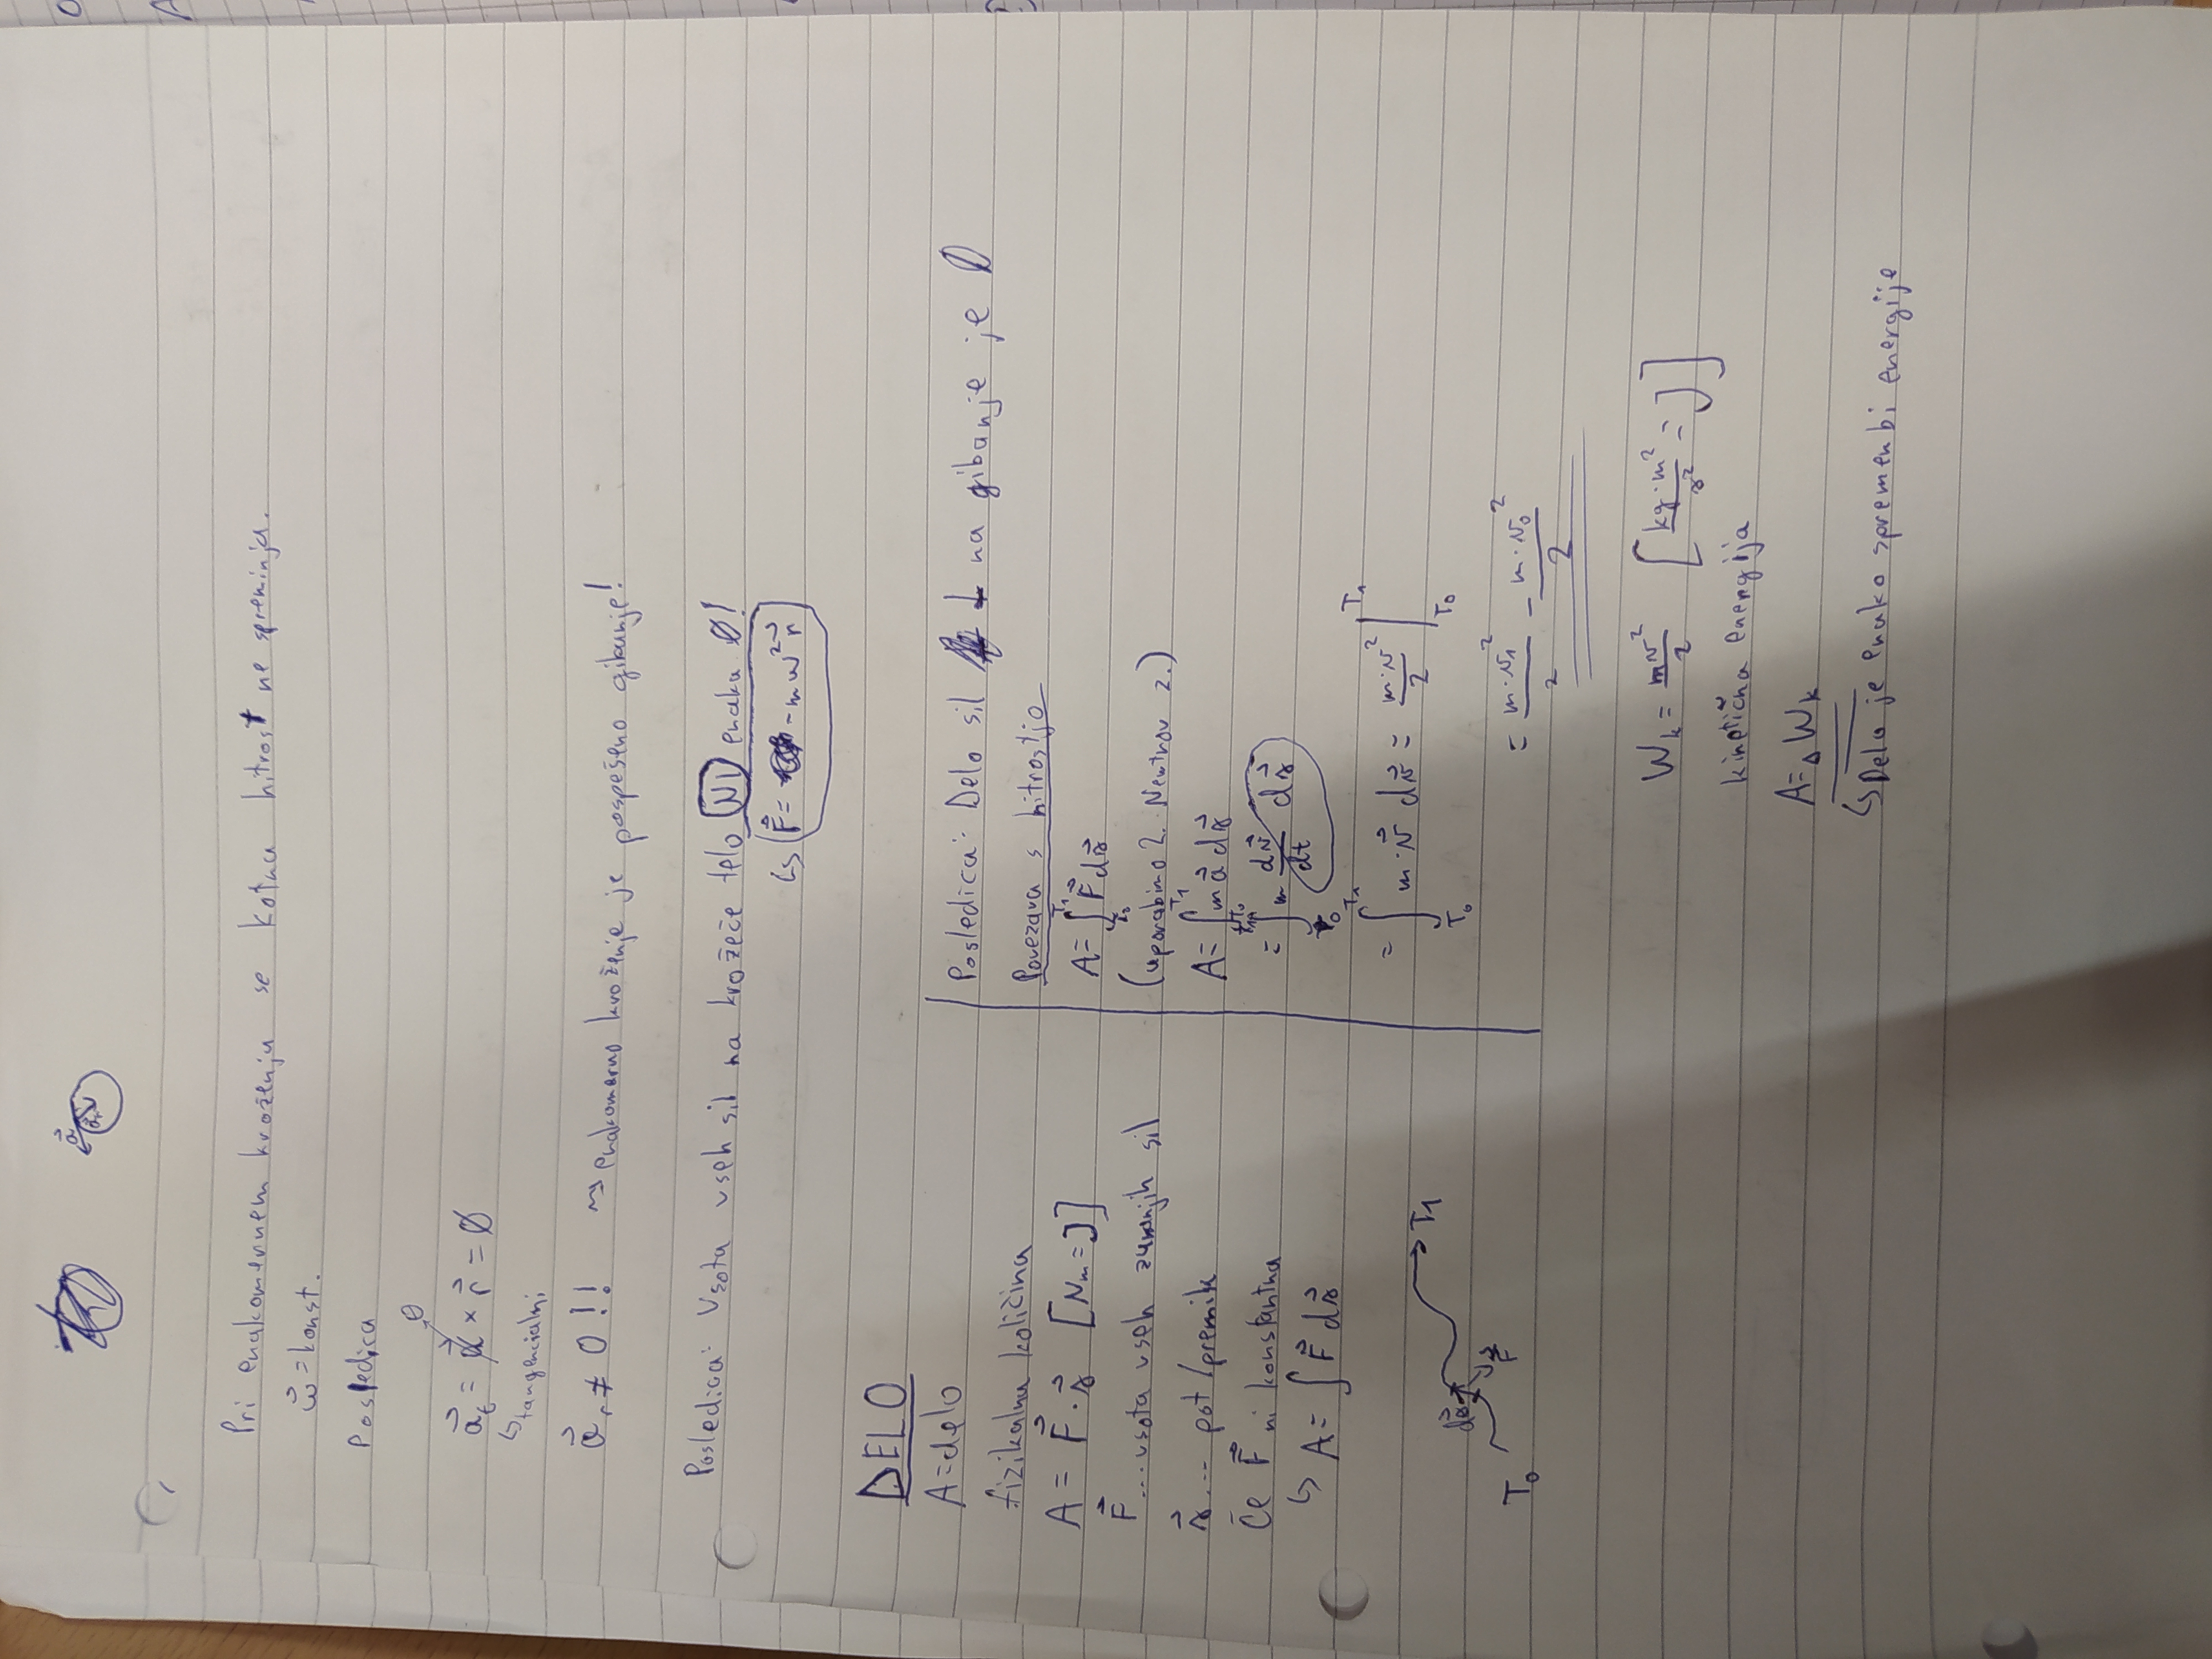 a⃗
a⃗r
Pri enakomernem kroženju se kotna hitrost ne spreminja.
ω⃗ = konst.
Posledica
0
a⃗t = α⃗ × r⃗ = 0
↳ tangencialni
a⃗r ≠ 0!! ⇝ enakomerno kroženje je pospešeno gibanje!
Posledica: Vsota vseh sil na krožeče telo NI enaka 0!
↳ F⃗ = -mω²r⃗
DELO
A = delo
fizikalna količina
A = F⃗ · s⃗ [Nm = J]
F⃗ ... vsota vseh zunanjih sil
s⃗ ... pot/premik
Če F⃗ ni konstantna
↳ A = ∫ F⃗ ds⃗
ds⃗ T1
F⃗
T0
Posledica: Delo sil ⊥ na gibanje je 0
Povezava s hitrostjo
A = ∫_{T0}^{T1} F⃗ ds⃗
(uporabimo 2. Newtnov z.)
A = ∫_{T0}^{T1} m a⃗ ds⃗
= ∫_{T0}^{T1} m dv⃗/dt ds⃗
= ∫_{T0}^{T1} m · v⃗ dv⃗ = m·v²/2 |_{T0}^{T1}
= m·v1²/2 - m·v0²/2
Wk = mv²/2 [kg·m²/s² = J]
kinetična energija
A = ΔWk
↳ Delo je enako spremembi energije